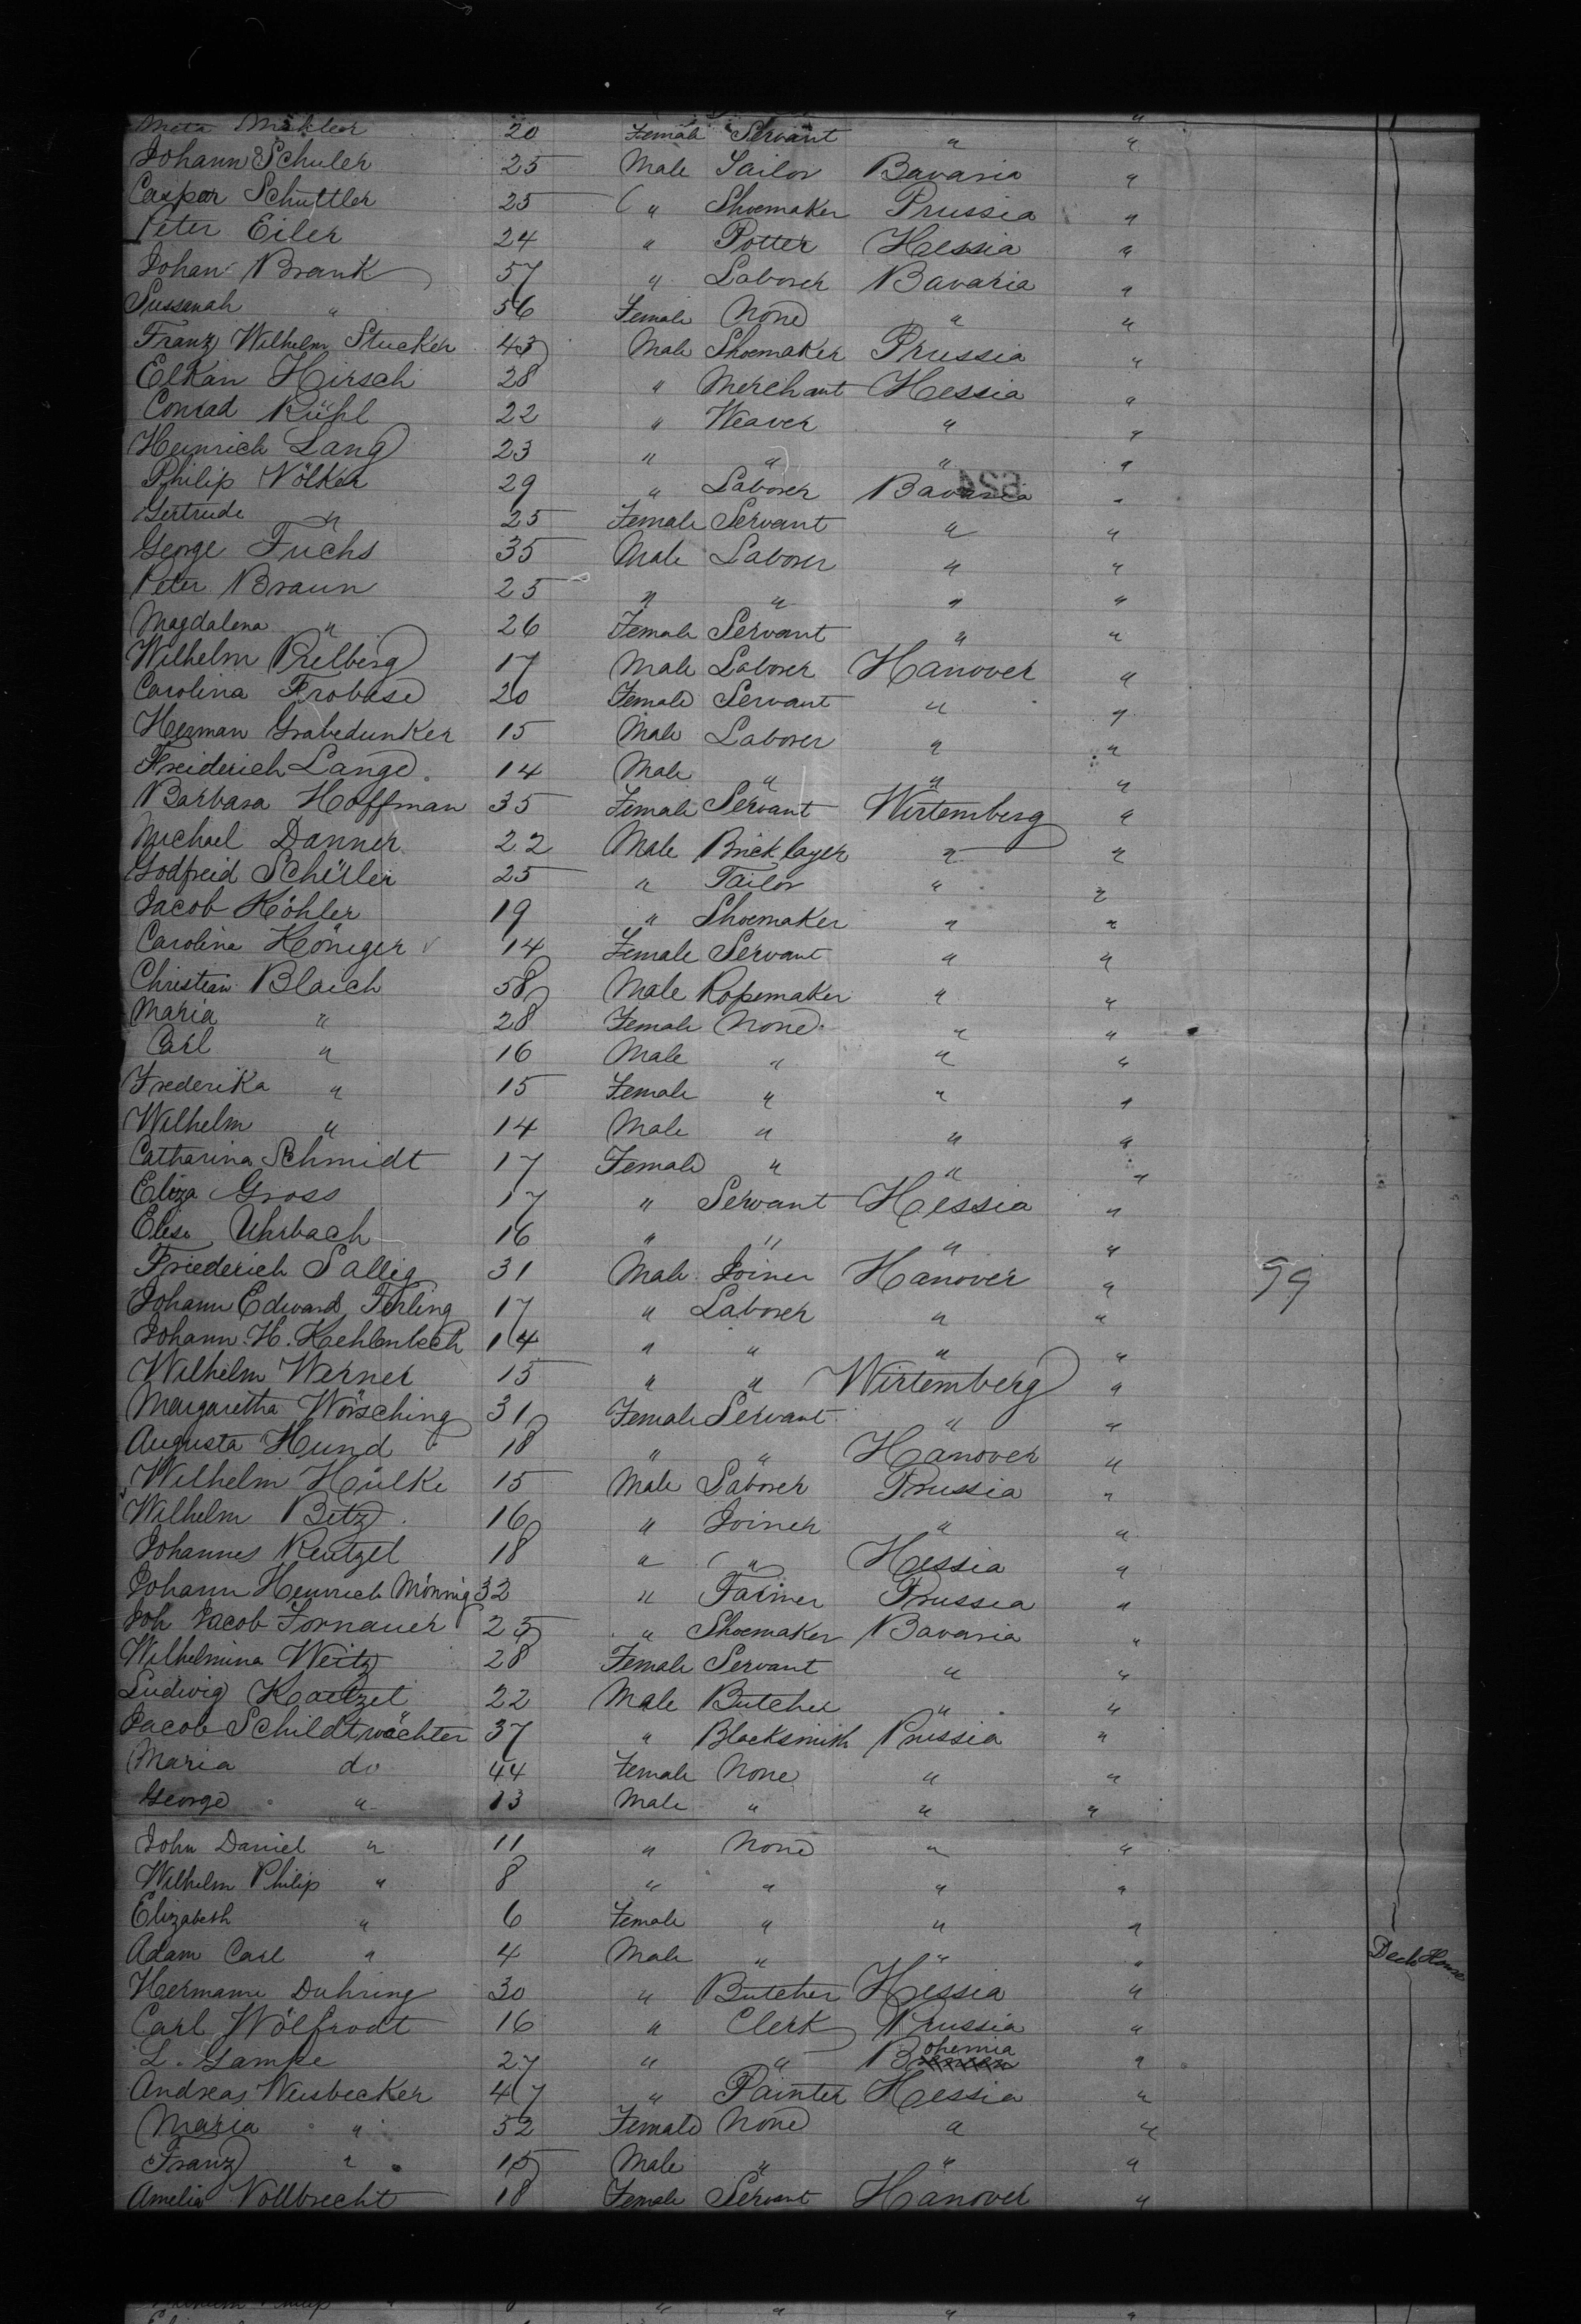 Meta Mökler 20 Female Servant " "
Johann Schuler 25 Male Sailor Bavaria "
Caspar Schuttler 25 " Shoemaker Prussia "
Peter Eiler 24 " Potter Hessia "
Johan Brank 57 " Laborer Bavaria "
Sussanah " 56 Female None " "
Franz Wilhelm Stucker 43 Male Shoemaker Prussia "
Elkan Hirsch 28 " Merchant Hessia "
Conrad Rühl 22 " Weaver " "
Heinrich Lang 23 " " " "
Philip Völker 29 " Laborer Bavaria "
Gertrude " 25 Female Servant " "
George Fuchs 35 Male Laborer " "
Peter Braun 25 " " " "
Magdalena " 26 Female Servant " "
Wilhelm Prelberg 17 Male Laborer Hanover "
Carolina Frobase 20 Female Servant " "
Herman Grabedunker 15 Male Laborer " "
Freiderich Lange 14 Male " " "
Barbara Hoffman 35 Female Servant Wirtemberg "
Michael Danner 22 Male Bricklayer " "
Godfreid Schüler 25 " Tailor " "
Jacob Köhler 19 " Shoemaker " "
Carolina Königer 14 Female Servant " "
Christian Blaich 58 Male Ropemaker " "
Maria " 28 Female None " "
Carl " 16 Male " " "
Frederika " 15 Female " " "
Wilhelm " 14 Male " " "
Catharina Schmidt 17 Female " " "
Eliza Gross 17 " Servant Hessia "
Elise Uhrbach 16 " " " "
Friederich Sallig 31 Male Joiner Hanover " 99
Johann Edward Fehling 17 " Laborer " "
Johann H. Kaehlenbeck 14 " " " "
Wilhelm Werner 15 " " Wirtemberg "
Margaretha Wörsching 31 Female Servant " "
Augusta Hund 18 " " Hanover "
Wilhelm Hülke 15 Male Laborer Prussia "
Wilhelm Betz 16 " Joiner " "
Johannes Rentzel 18 " " Hessia "
Johann Heinrich Mönnig 32 " Farmer Prussia "
Joh Jacob Fornauer 25 " Shoemaker Bavaria "
Wilhelmina Weitz 28 Female Servant " "
Ludwig Kaetzel 22 Male Butcher " "
Jacob Schildtwächter 37 " Blacksmith Prussia "
Maria do 44 Female None " "
George " 13 Male " " "
John Daniel " 11 " None " "
Wilhelm Philip " 8 " " " "
Elizabeth " 6 Female " " "
Adam Carl " 4 Male " " " Deck House
Hermann Duhring 30 " Butcher Hessia "
Carl Wölfrodt 16 " Clerk Prussia "
L. Gampe 27 " " Bohemia "
Andreas Weisbecker 47 " Painter Hessia "
Maria " 52 Female None " "
Franz " 15 Male " " "
Amelia Vollbrecht 18 Female Servant Hanover "